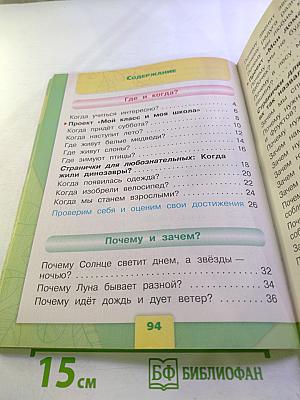 СОДЕРЖАНИЕ
Где и когда?
Когда учиться интересно? 4
Проект «Мой класс и моя школа» 6
Когда придёт суббота? 8
Когда наступит лето? 10
Где живут белые медведи? 12
Где живут слоны? 14
Где зимуют птицы? 16
Странички для любознательных: Когда
жили динозавры? 18
Когда появилась одежда? 20
Когда изобрели велосипед? 22
Когда мы станем взрослыми? 24
Проверим себя и оценим свои достижения 26
Почему и зачем?
Почему Солнце светит днем, а звёзды —
ночью? 32
Почему Луна бывает разной? 34
Почему идёт дождь и дует ветер? 36
94
15 см
БФ БИБЛИОФАН